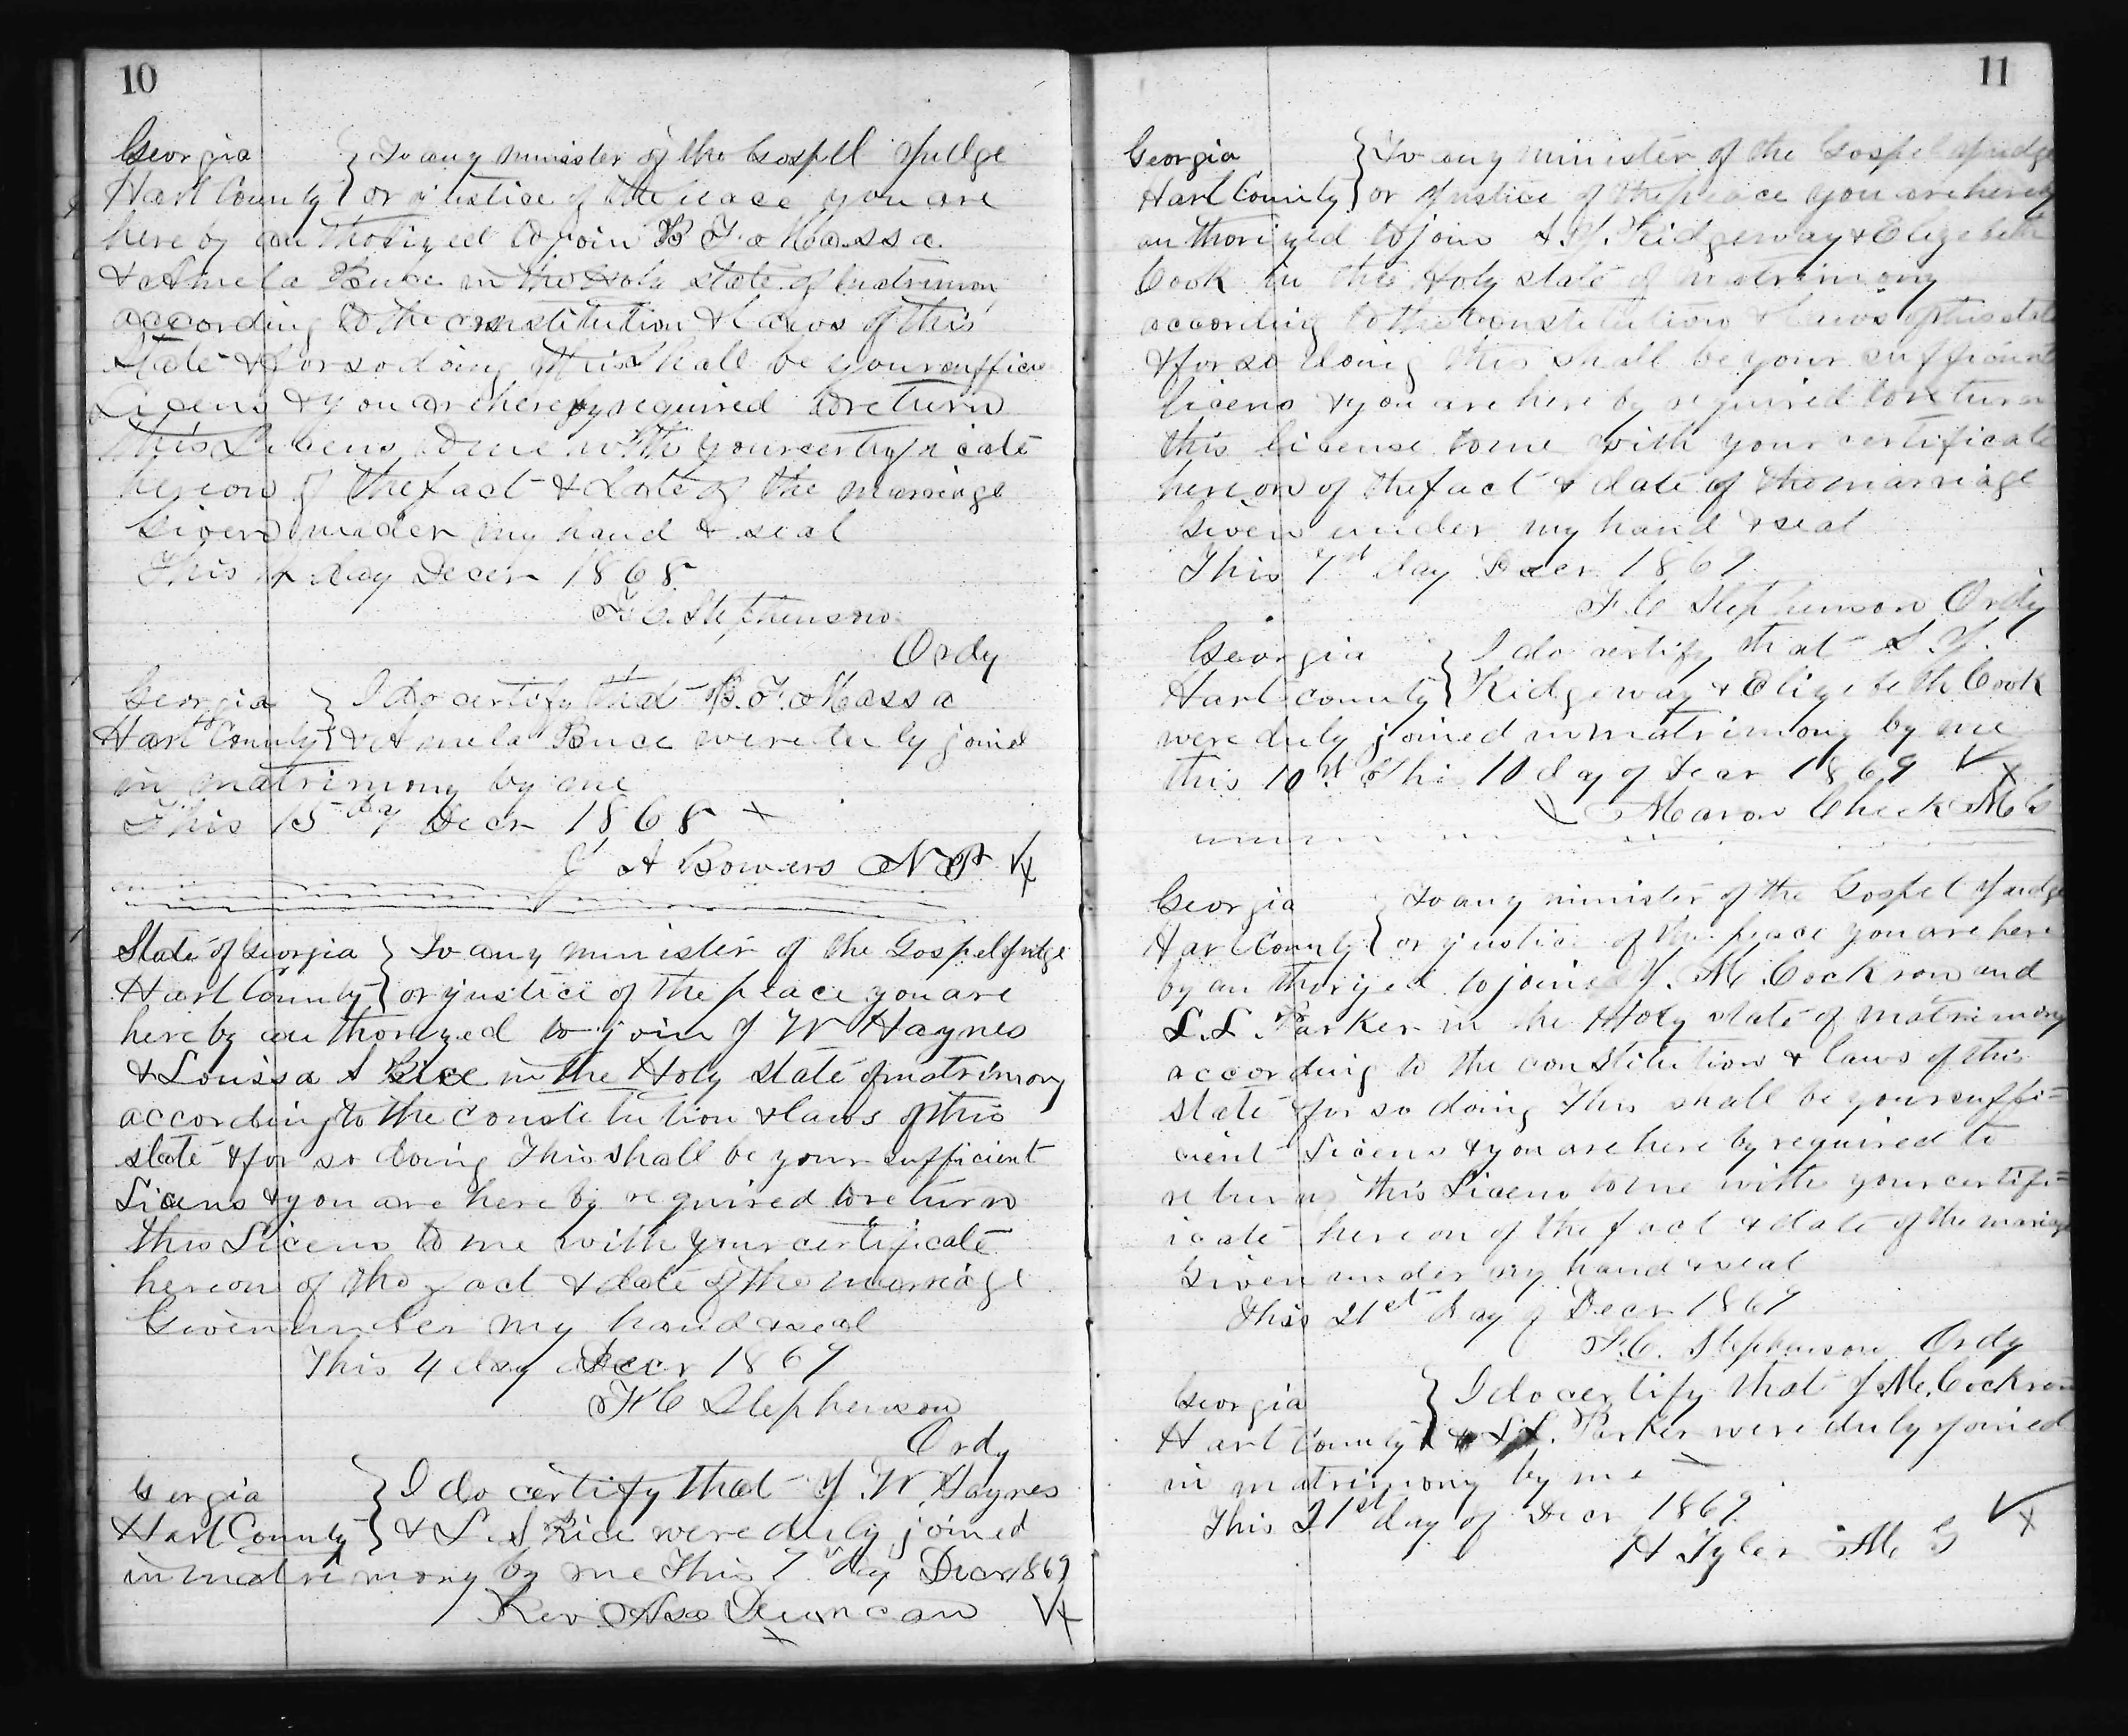 10
Georgia } To any minister of the Gospel Judge
Hart County } or justice of the peace you are
here by authorized to join B F
& in the Holy state of matrimon
according to the constitution & laws of this
State & for so doing this shall be your sufficien
Licens & you are hereby required to return
this Licens to me with your certificate
hereon of the fact & date of the marriage
Given under my hand & seal
This day Decem 1868
F. C. Stephenson
Ordy
Georgia } I do certify that B. F.
Hart County } & were duly joined
in matrimony by me
This 15 day Decr 1868
J A Bowers N P
State of Georgia } To any minister of the Gospel Judge
Hart County } or justice of the peace you are
here by authorized to join J W Haynes
& Louissa A Rice in the Holy state of matrimony
according to the constitution & laws of this
state & for so doing This shall be your sufficient
Licens & you are here by required to return
this Licens to me with your certificate
hereon of the fact & date of the marriage
Given under my hand & seal
This 4 day Decr 1869
F C Stephenson
Ordy
Georgia } I do certify that J. W. Haynes
Hart County } & L. Rice were duly joined
in matrimony by me This 7 day Decr 1869
Rev Asa Duncan
11
Georgia } To any minister of the Gospel Judge
Hart County } or Justice of the peace you are hereby
authorized to join Ridgeway & Elizebeth
Cook in the Holy state of matrimony
according to the constitution & laws of this state
& for so doing this shall be your sufficient
licens & you are here by required to return
this license to me with your certificate
hereon of the fact & date of the marriage
Given under my hand & seal
This 7st day Decr 1869
F. C Stephenson Ordy
Georgia } I do certify that
Hart county } Ridgeway & Elizebeth Cook
were duly joined in matrimony by me
this 10 This 10 day of Decr 1869
Cheek M G
Georgia } To any minister of the Gospel Judge
Hart County } or justice of the peace you are here
by authorized to join J. M. Cockron and
L. L. Parker in the Holy state of matrimony
according to the constitution & laws of this
state & for so doing This shall be your suffi=
cient Licens & you are here by required to
return this Licens to me with your certifi=
icate hereon of the fact & date of the mariage
Given under my hand & seal
this 21st day of Decr 1869
F. C. Stephenson Ordy
Georgia } I do certify that J. M. Cockron
Hart County } & L. Parker were duly joined
in matrimony by me
This 21st day of Decr 1869
H Tyler M G